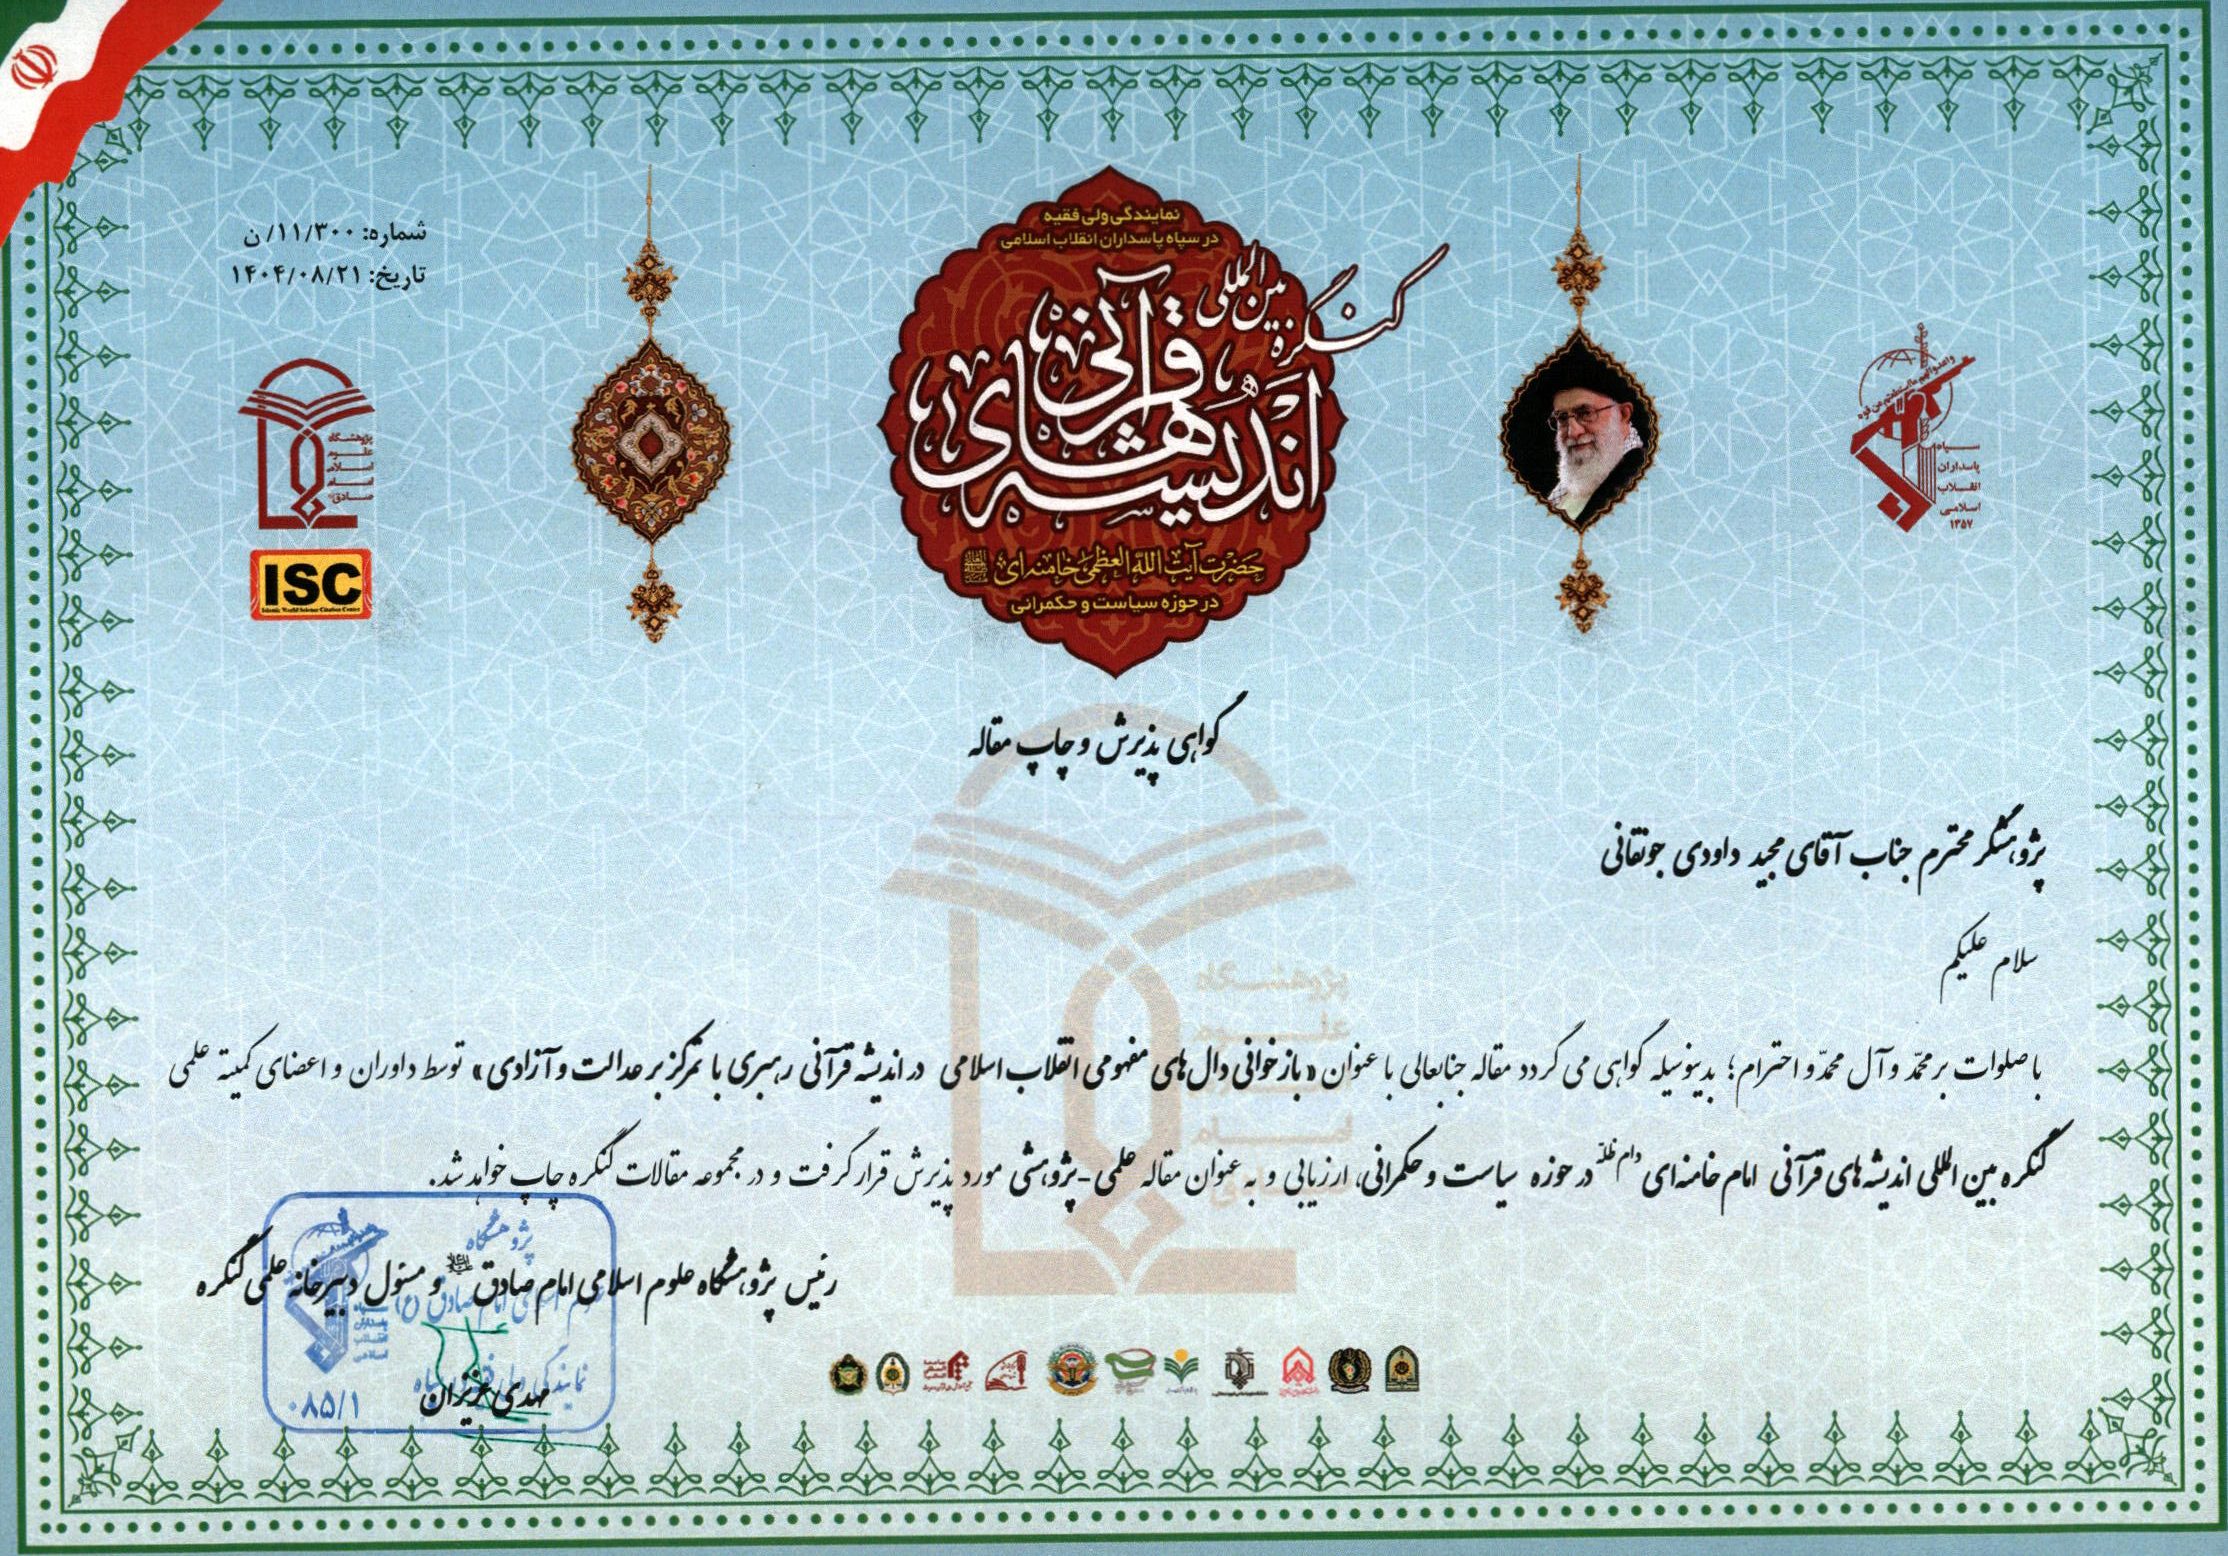 شماره: ۱۱/۳۰۰/ن
تاریخ: ۱۴۰۴/۰۸/۲۱
نمایندگی ولی فقیه
در سپاه پاسداران انقلاب اسلامی
کنگره بین المللی
اندیشه های قرآنی
حضرت آیت الله العظمی خامنه ای
در حوزه سیاست و حکمرانی
سپاه
پاسداران
انقلاب
اسلامی
۱۳۵۷
پژوهشگاه
علوم
اسلامی
امام
صادق
ISC
Islamic World Science Citation Center
گواهی پذیرش و چاپ مقاله
پژوهشگر محترم جناب آقای مجید داودی جونقانی
سلام علیکم
با صلوات بر محمّد و آل محمّد و احترام؛ بدینوسیله گواهی می گردد مقاله جنابعالی با عنوان «بازخوانی دال های مفهومی انقلاب اسلامی در اندیشه قرآنی رهبری با تمرکز بر عدالت و آزادی» توسط داوران و اعضای کمیته علمی
کنگره بین المللی اندیشه های قرآنی امام خامنه ای دام ظلّه در حوزه سیاست و حکمرانی، ارزیابی و به عنوان مقاله علمی-پژوهشی مورد پذیرش قرار گرفت و در مجموعه مقالات کنگره چاپ خواهد شد.
رئیس پژوهشگاه علوم اسلامی امام صادق و مسئول دبیرخانه علمی کنگره
مهدی عزیزان
پژوهشگاه
علوم اسلامی امام صادق (ع)
نمایندگی ولی فقیه در سپاه
سپاه
پاسداران
انقلاب
اسلامی
۰۸۵/۱